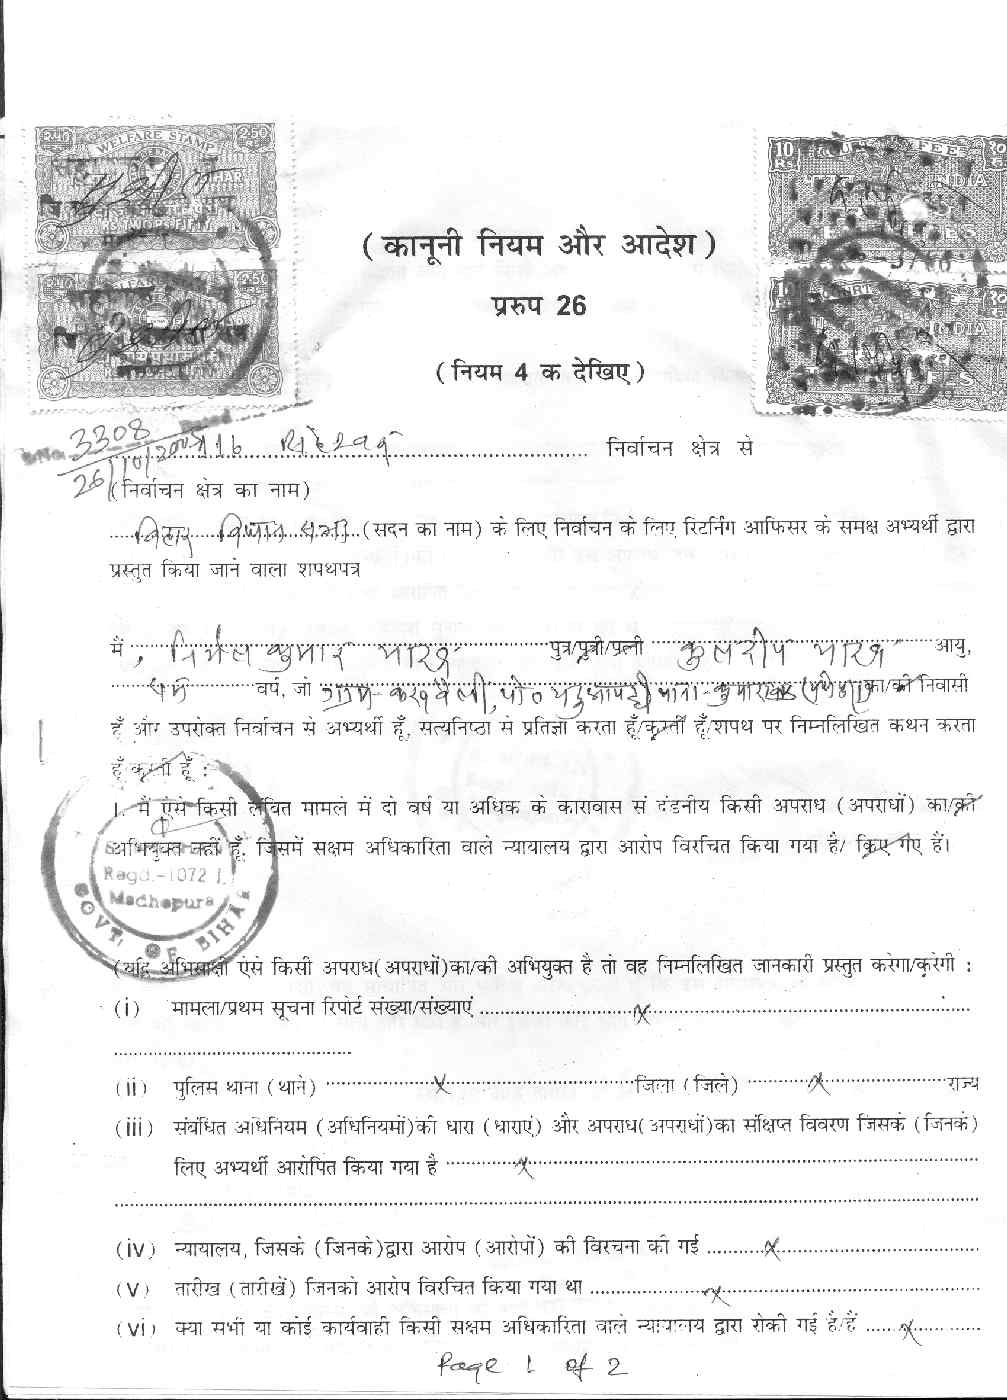 2.50 WELFARE STAMP 2.50
10 Rs
INDIA
( कानूनी नियम और आदेश )
प्ररुप 26
( नियम 4 क देखिए )
3308
26/10/
निर्वाचन क्षेत्र से
(निर्वाचन क्षेत्र का नाम)
बिहार विधान सभा (सदन का नाम) के लिए निर्वाचन के लिए रिटर्निंग आफिसर के समक्ष अभ्यर्थी द्वारा
प्रस्तुत किया जाने वाला शपथपत्र
मैं, निर्मल कुमार भारत पुत्र/पुत्री/पत्नी कुलदीप भारत आयु,
वर्ष, जो ग्राम- का/की निवासी
हूँ और उपरोक्त निर्वाचन से अभ्यर्थी हूँ, सत्यनिष्ठा से प्रतिज्ञा करता हूँ/करती हूँ/शपथ पर निम्नलिखित कथन करता
हूँ करती हूँ :
I. मैं ऐसे किसी लंबित मामले में दो वर्ष या अधिक के कारावास से दंडनीय किसी अपराध (अपराधों) का/की
अभियुक्त नहीं हूँ, जिसमें सक्षम अधिकारिता वाले न्यायालय द्वारा आरोप विरचित किया गया है/ किए गए हैं।
Regd.-1072
Madhepura
GOVT. OF BIHAR
(यदि अभिसाक्षी ऐसे किसी अपराध(अपराधों)का/की अभियुक्त है तो वह निम्नलिखित जानकारी प्रस्तुत करेगा/करेगी :
(i) मामला/प्रथम सूचना रिपोर्ट संख्या/संख्याएं x
(ii) पुलिस थाना (थाने) x जिला (जिले) x राज्य
(iii) संबंधित अधिनियम (अधिनियमों)की धारा (धाराएं) और अपराध(अपराधों)का संक्षिप्त विवरण जिसके (जिनके)
लिए अभ्यर्थी आरोपित किया गया है x
(iv) न्यायालय, जिसके (जिनके)द्वारा आरोप (आरोपों) की विरचना की गई x
(v) तारीख (तारीखें) जिनको आरोप विरचित किया गया था x
(vi) क्या सभी या कोई कार्यवाही किसी सक्षम अधिकारिता वाले न्यायालय द्वारा रोकी गई है/हैं x
Page 1 of 2